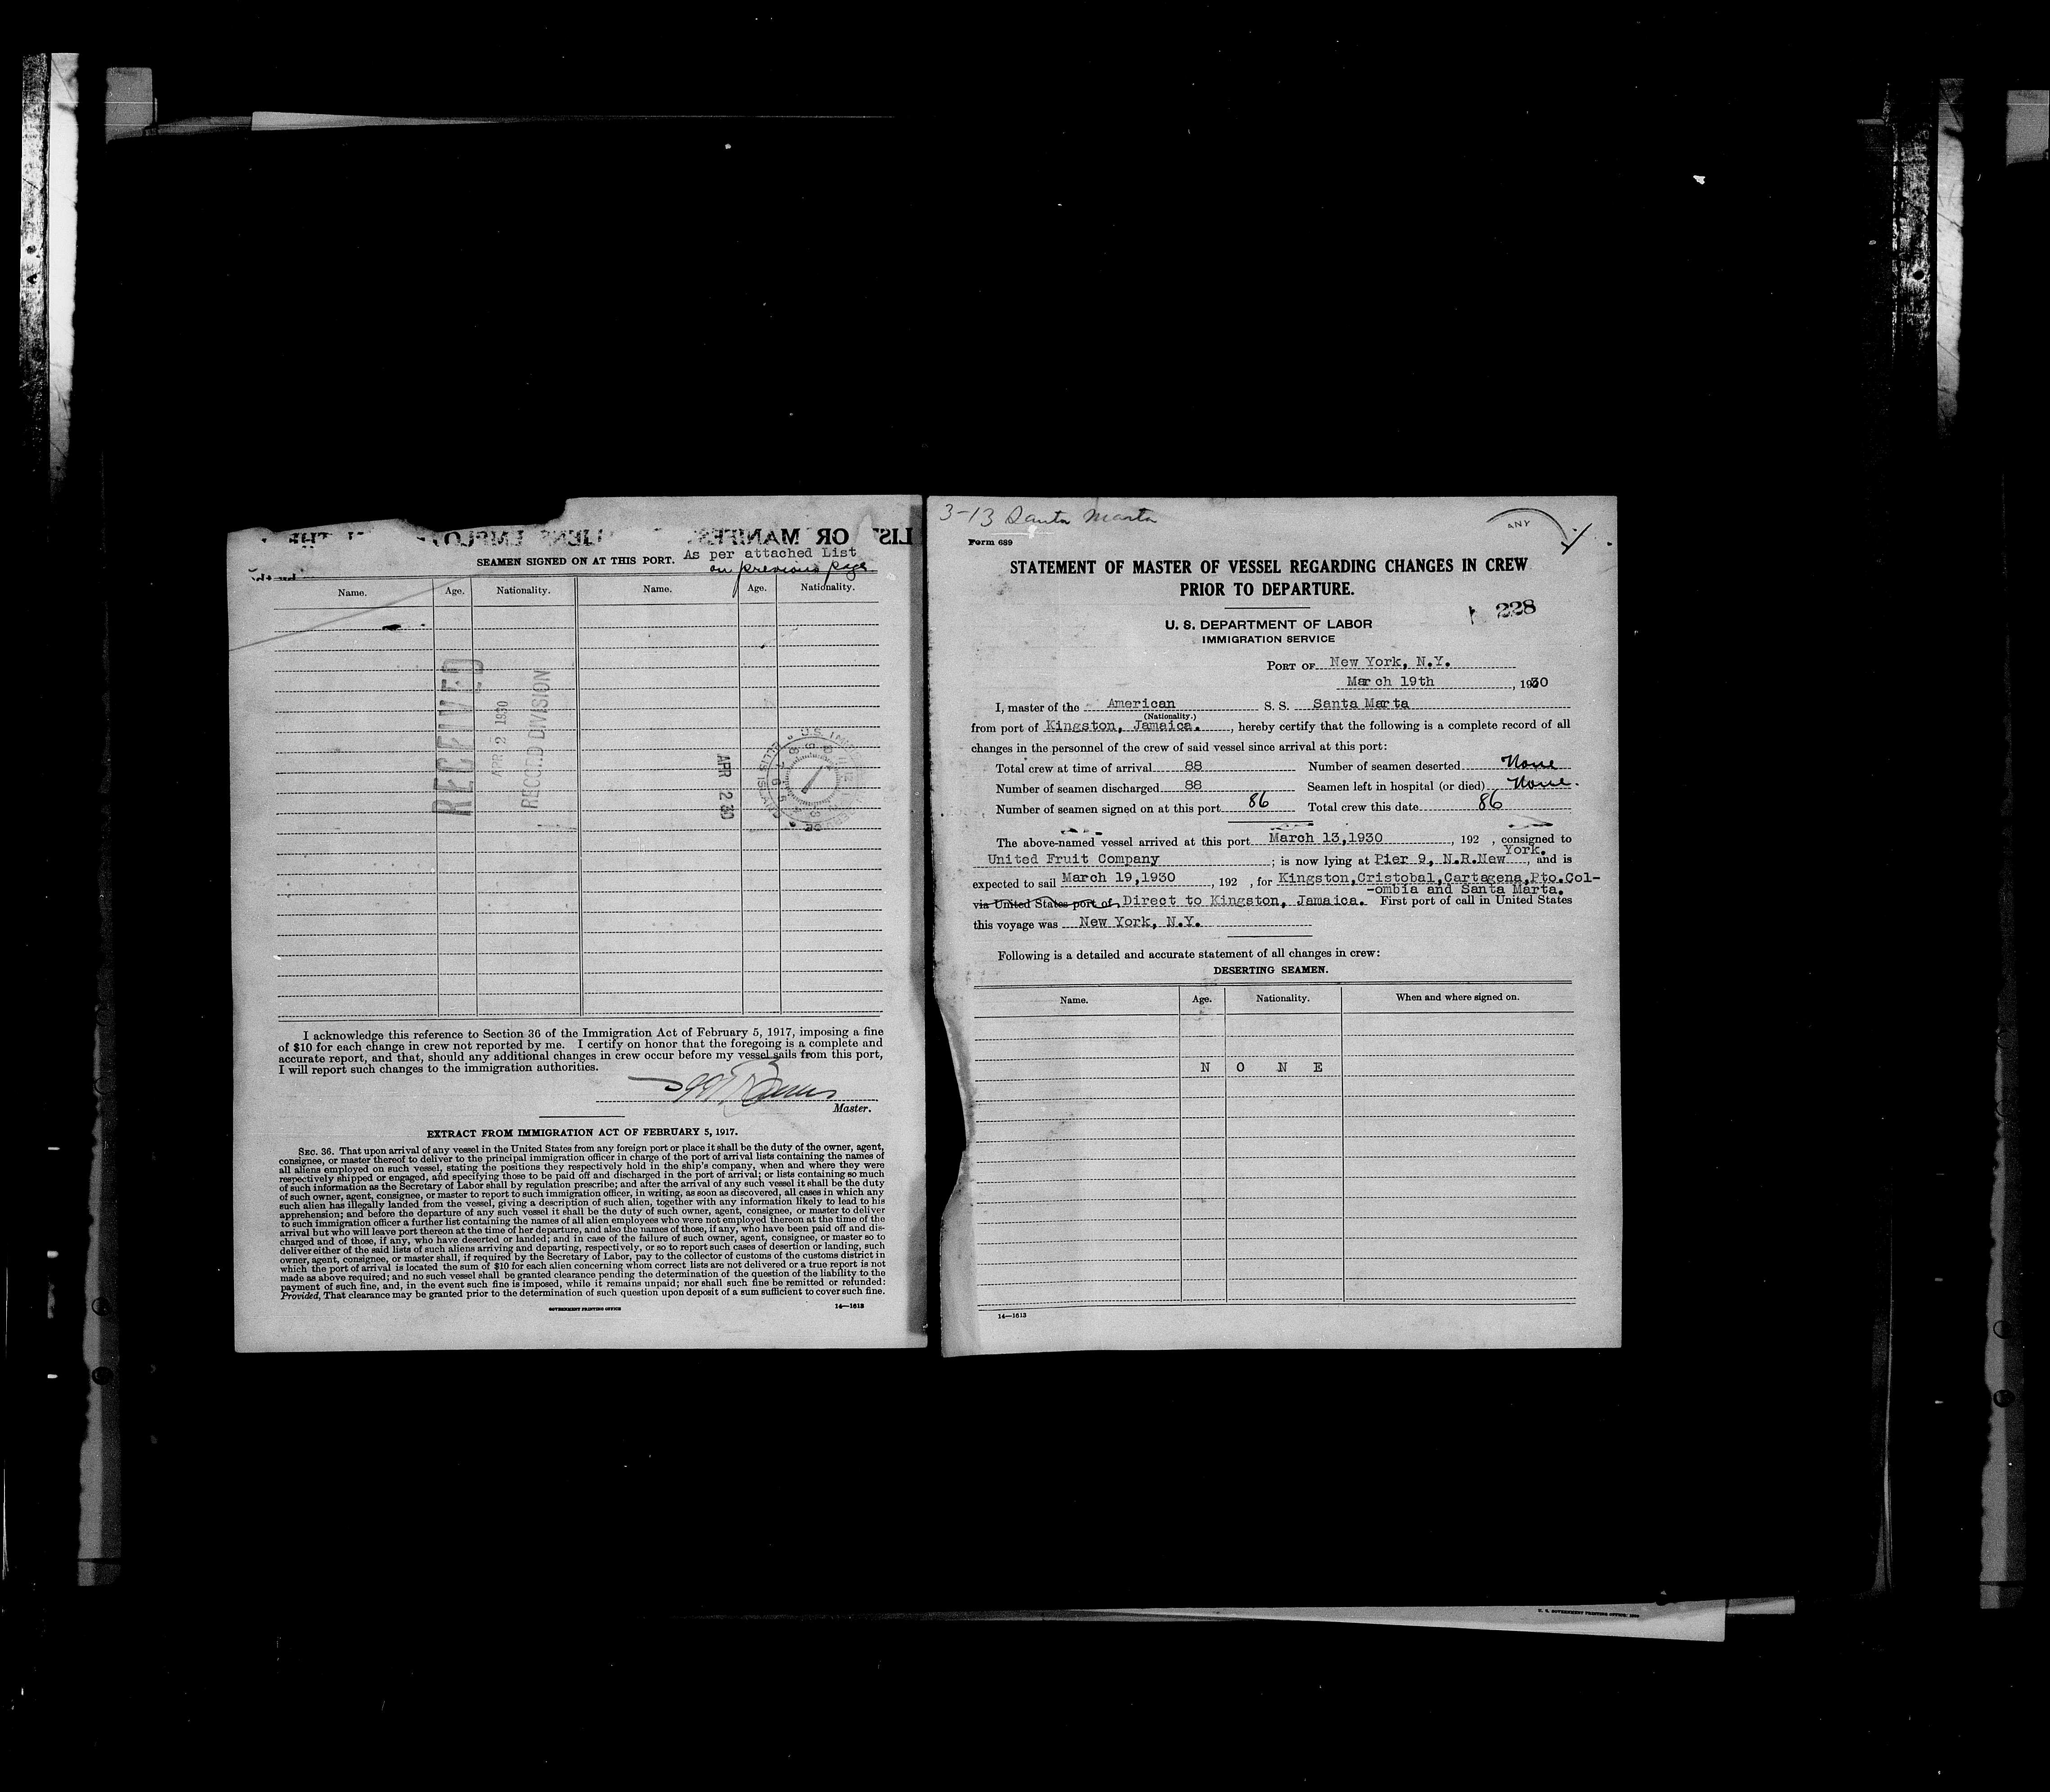 LIST OR MANIFEST
SEAMEN SIGNED ON AT THIS PORT. As per attached List
on previous page
Name. Age. Nationality. Name. Age. Nationality.
RECEIVED
APR 2 1930
RECORD DIVISION
APR 2 30
I acknowledge this reference to Section 36 of the Immigration Act of February 5, 1917, imposing a fine
of $10 for each change in crew not reported by me. I certify on honor that the foregoing is a complete and
accurate report, and that, should any additional changes in crew occur before my vessel sails from this port,
I will report such changes to the immigration authorities.
Master.
EXTRACT FROM IMMIGRATION ACT OF FEBRUARY 5, 1917.
SEC. 36. That upon arrival of any vessel in the United States from any foreign port or place it shall be the duty of the owner, agent,
consignee, or master thereof to deliver to the principal immigration officer in charge of the port of arrival lists containing the names of
all aliens employed on such vessel, stating the positions they respectively hold in the ship's company, when and where they were
respectively shipped or engaged, and specifying those to be paid off and discharged in the port of arrival; or lists containing so much
of such information as the Secretary of Labor shall by regulation prescribe; and after the arrival of any such vessel it shall be the duty
of such owner, agent, consignee, or master to report to such immigration officer, in writing, as soon as discovered, all cases in which any
such alien has illegally landed from the vessel, giving a description of such alien, together with any information likely to lead to his
apprehension; and before the departure of any such vessel it shall be the duty of such owner, agent, consignee, or master to deliver
to such immigration officer a further list containing the names of all alien employees who were not employed thereon at the time of the
arrival but who will leave port thereon at the time of her departure, and also the names of those, if any, who have been paid off and dis-
charged and of those, if any, who have deserted or landed; and in case of the failure of such owner, agent, consignee, or master so to
deliver either of the said lists of such aliens arriving and departing, respectively, or so to report such cases of desertion or landing, such
owner, agent, consignee, or master shall, if required by the Secretary of Labor, pay to the collector of customs of the customs district in
which the port of arrival is located the sum of $10 for each alien concerning whom correct lists are not delivered or a true report is not
made as above required; and no such vessel shall be granted clearance pending the determination of the question of the liability to the
payment of such fine, and, in the event such fine is imposed, while it remains unpaid; nor shall such fine be remitted or refunded:
Provided, That clearance may be granted prior to the determination of such question upon deposit of a sum sufficient to cover such fine.
GOVERNMENT PRINTING OFFICE 14—1613
3-13 Santa Marta
ANY
Form 689
STATEMENT OF MASTER OF VESSEL REGARDING CHANGES IN CREW
PRIOR TO DEPARTURE.
228
U. S. DEPARTMENT OF LABOR
IMMIGRATION SERVICE
PORT OF New York, N.Y.
March 19th, 1930
I, master of the American S. S. Santa Marta
(Nationality.)
from port of Kingston, Jamaica., hereby certify that the following is a complete record of all
changes in the personnel of the crew of said vessel since arrival at this port:
Total crew at time of arrival 88 Number of seamen deserted None
Number of seamen discharged 88 Seamen left in hospital (or died) None.
Number of seamen signed on at this port 86 Total crew this date 86
The above-named vessel arrived at this port March 13,1930, 192 , consigned to
York.
United Fruit Company; is now lying at Pier 9, N.R.New, and is
expected to sail March 19,1930, 192 , for Kingston,Cristobal,Cartagena,Pto.Col-
-ombia and Santa Marta.
via United States port of Direct to Kingston, Jamaica. First port of call in United States
this voyage was New York, N.Y.
Following is a detailed and accurate statement of all changes in crew:
DESERTING SEAMEN.
Name. Age. Nationality. When and where signed on.
N O N E
14—1613